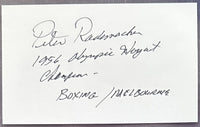 Peter Rademacher
1956 Olympic Hvywt
Champion -
BOXING / MELBOURNE